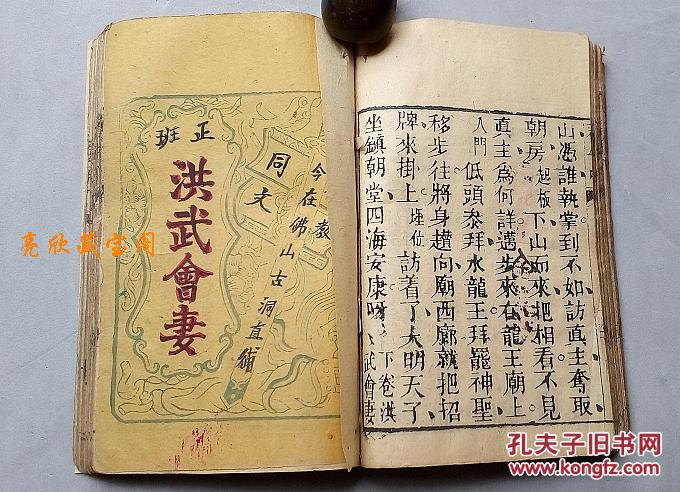 山憑誰執掌到不如訪真主奪取
朝房起板下山而來把相看不見
真主為何詳邁步來在龍王廟上
入門低頭叅拜水龍王拜罷神聖
移步往將身趲向廟西廊就把招
牌來掛上埋位訪着了大明天子
坐鎮朝堂四海安康呀下卷洪武會妻
今在
佛山古洞直鋪
同文
正班
洪武會妻
亮欣藏宝阁
孔夫子旧书网
www.kongfz.com